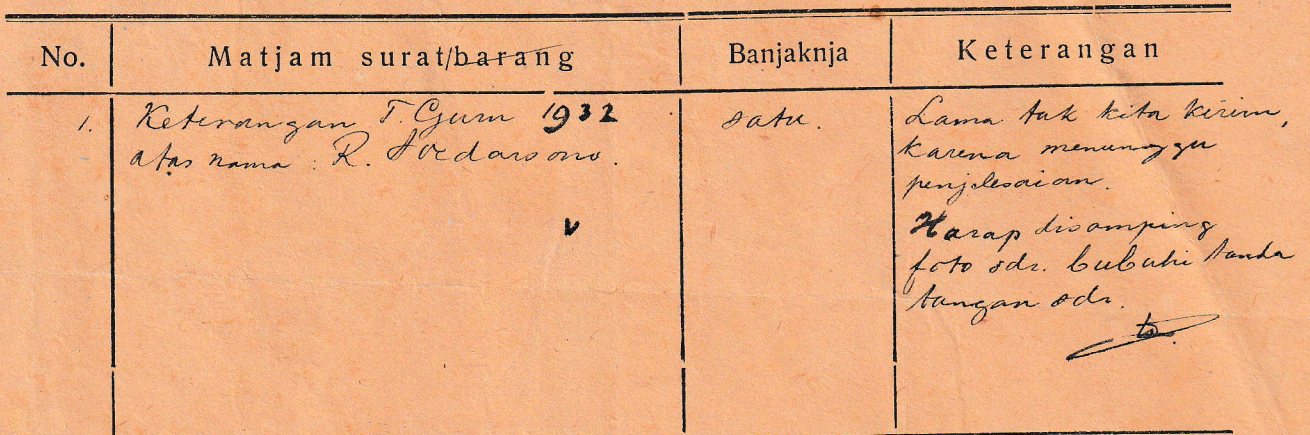 No. Matjam surat/barang Banjaknja Keterangan
1. Keterangan T. Guru 1932 satu. Lama tak kita kirim,
atas nama : R. Soedarsono. karena menunggu
penjelesaian.
Harap disamping
foto sdr. bubuhi tanda
tangan sdr.